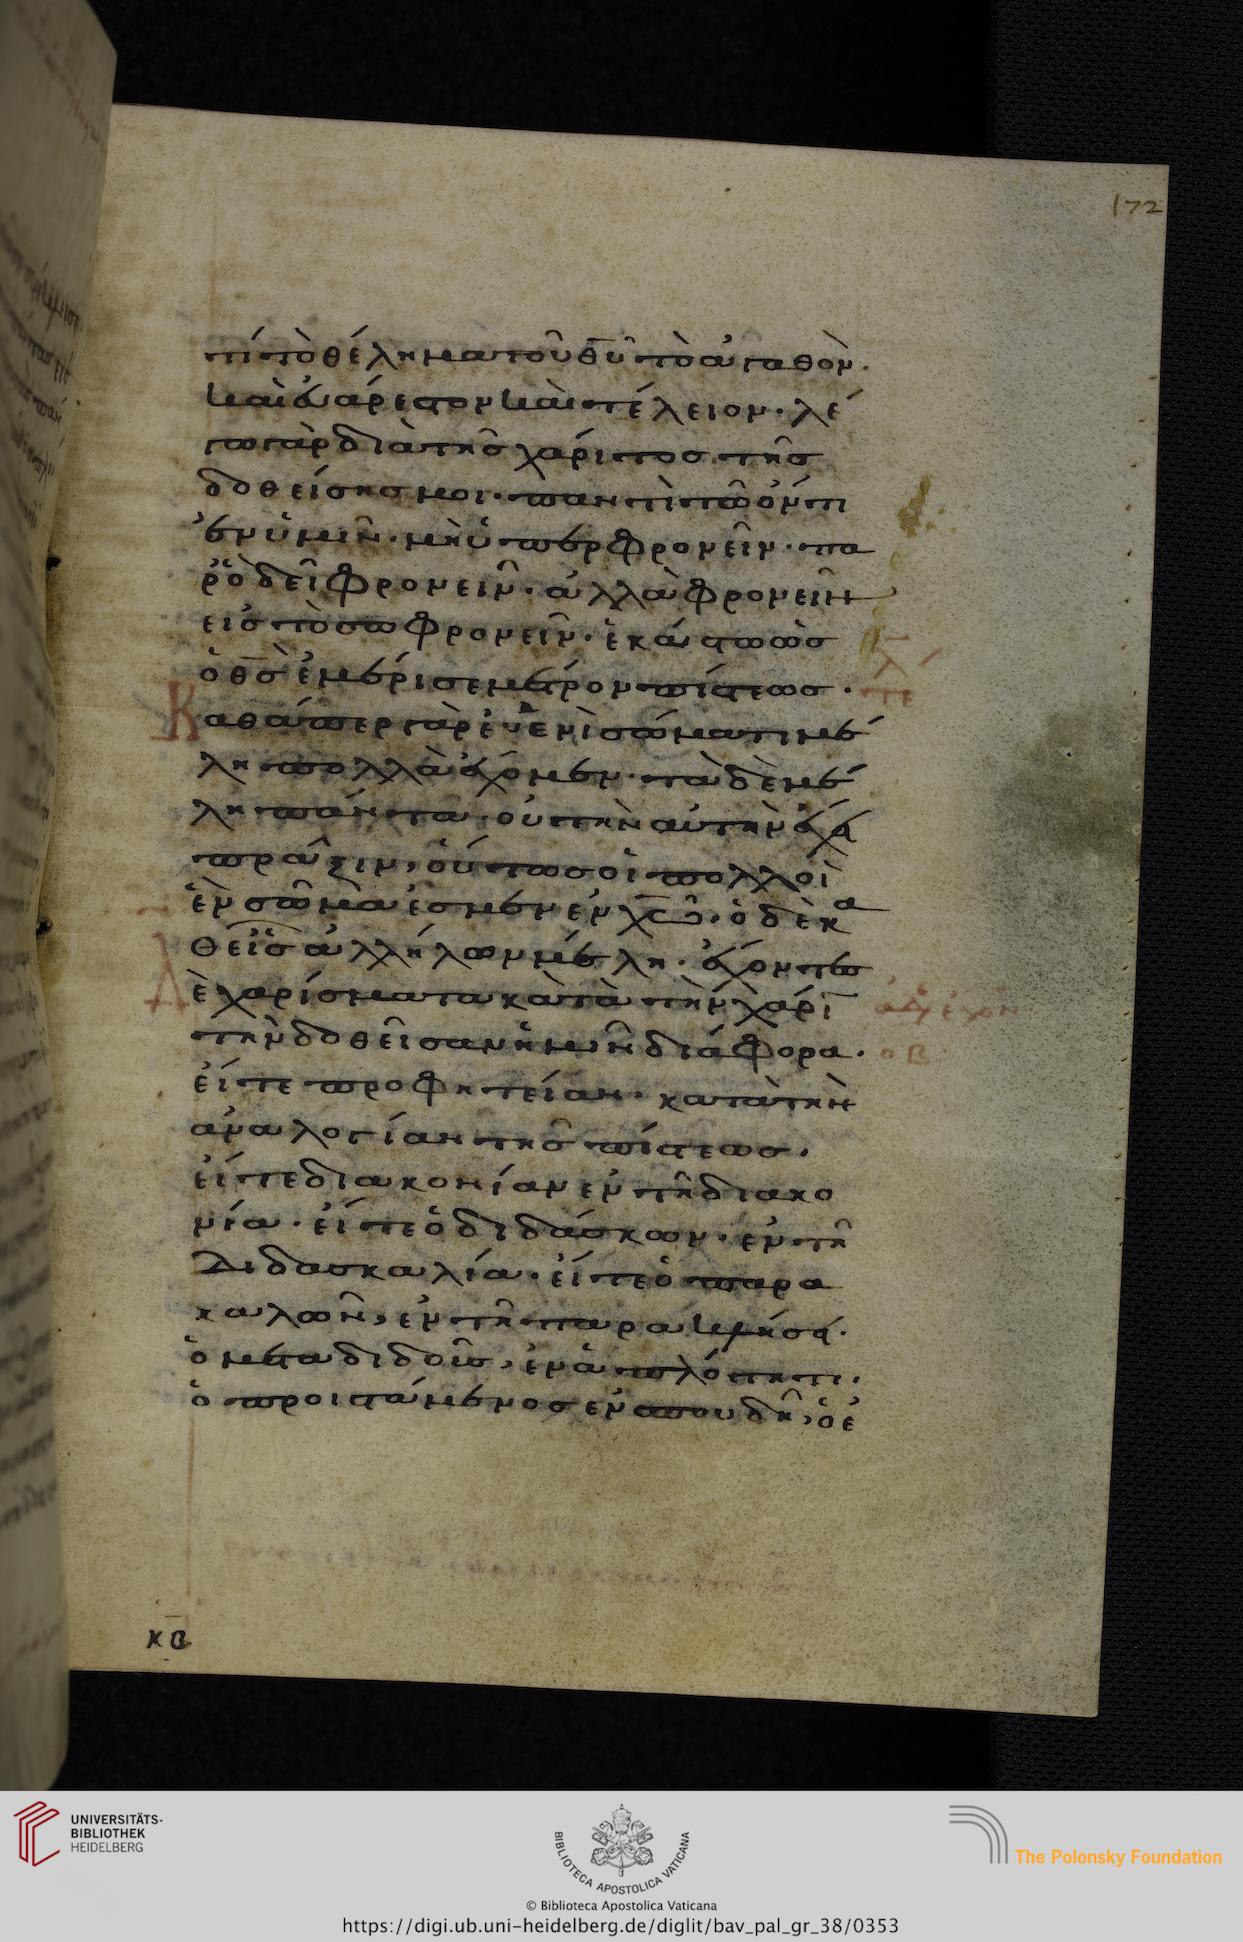 172
τί τὸ θέλημα τοῦ θ̅υ̅ τὸ ἀγαθὸν.
καὶ ἐυάρεστον καὶ τέλειον· λέ
γω γὰρ διὰ τῆς χάριτος τῆς
δοθείσης μοι· παντὶ τῶ ὄντι
ἐν ὑμῖν· μὴ ὑπερφρονεῖν· πα
ρ' ὃ δεῖ φρονεῖν· ἀλλὰ φρονεῖν
εἰς τὸ σωφρονεῖν· ἑκάστω ὡς
ὁ θ̅ς̅ ἐμέρισε μέτρον πίστεως·
Καθάπερ γὰρ ἐν ἑνὶ σώματι μέ
λη πολλὰ ἔχομεν· τὰ δὲ μέ
λη πάντα οὐ τὴν αὐτὴν ἔχει
πρᾶξιν, οὕτως οἱ πολλοὶ
ἓν σῶμὰ ἐσμεν ἐν χ̅ω̅· ὁ δὲ κα
θεῖς ἀλλήλων μέλη· ἔχοντες
Δὲ χαρίσματα κατὰ τὴν χάρι̅
τὴν δοθεῖσαν ἡμῖν διάφορα·
εἴτε προφητείαν· κατὰ τὴν
ἀναλογίαν τῆς πίστεως.
εἴτε διακονίαν ἐν τῆ διακο
νία· εἴτε ὁ διδάσκων· ἐν τῆ
Διδασκαλία· εἴτε ὁ παρα
καλῶν, ἐν τῆ παρακλήσει·
ὁ μεταδιδοὺς, ἐν ἁπλότητι·
ὁ προϊστάμενος ἐν σπουδῆ, ὁ ἐ
κ̅β̅
UNIVERSITÄTS-
BIBLIOTHEK
HEIDELBERG
BIBLIOTECA APOSTOLICA VATICANA
The Polonsky Foundation
© Biblioteca Apostolica Vaticana
https://digi.ub.uni-heidelberg.de/diglit/bav_pal_gr_38/0353